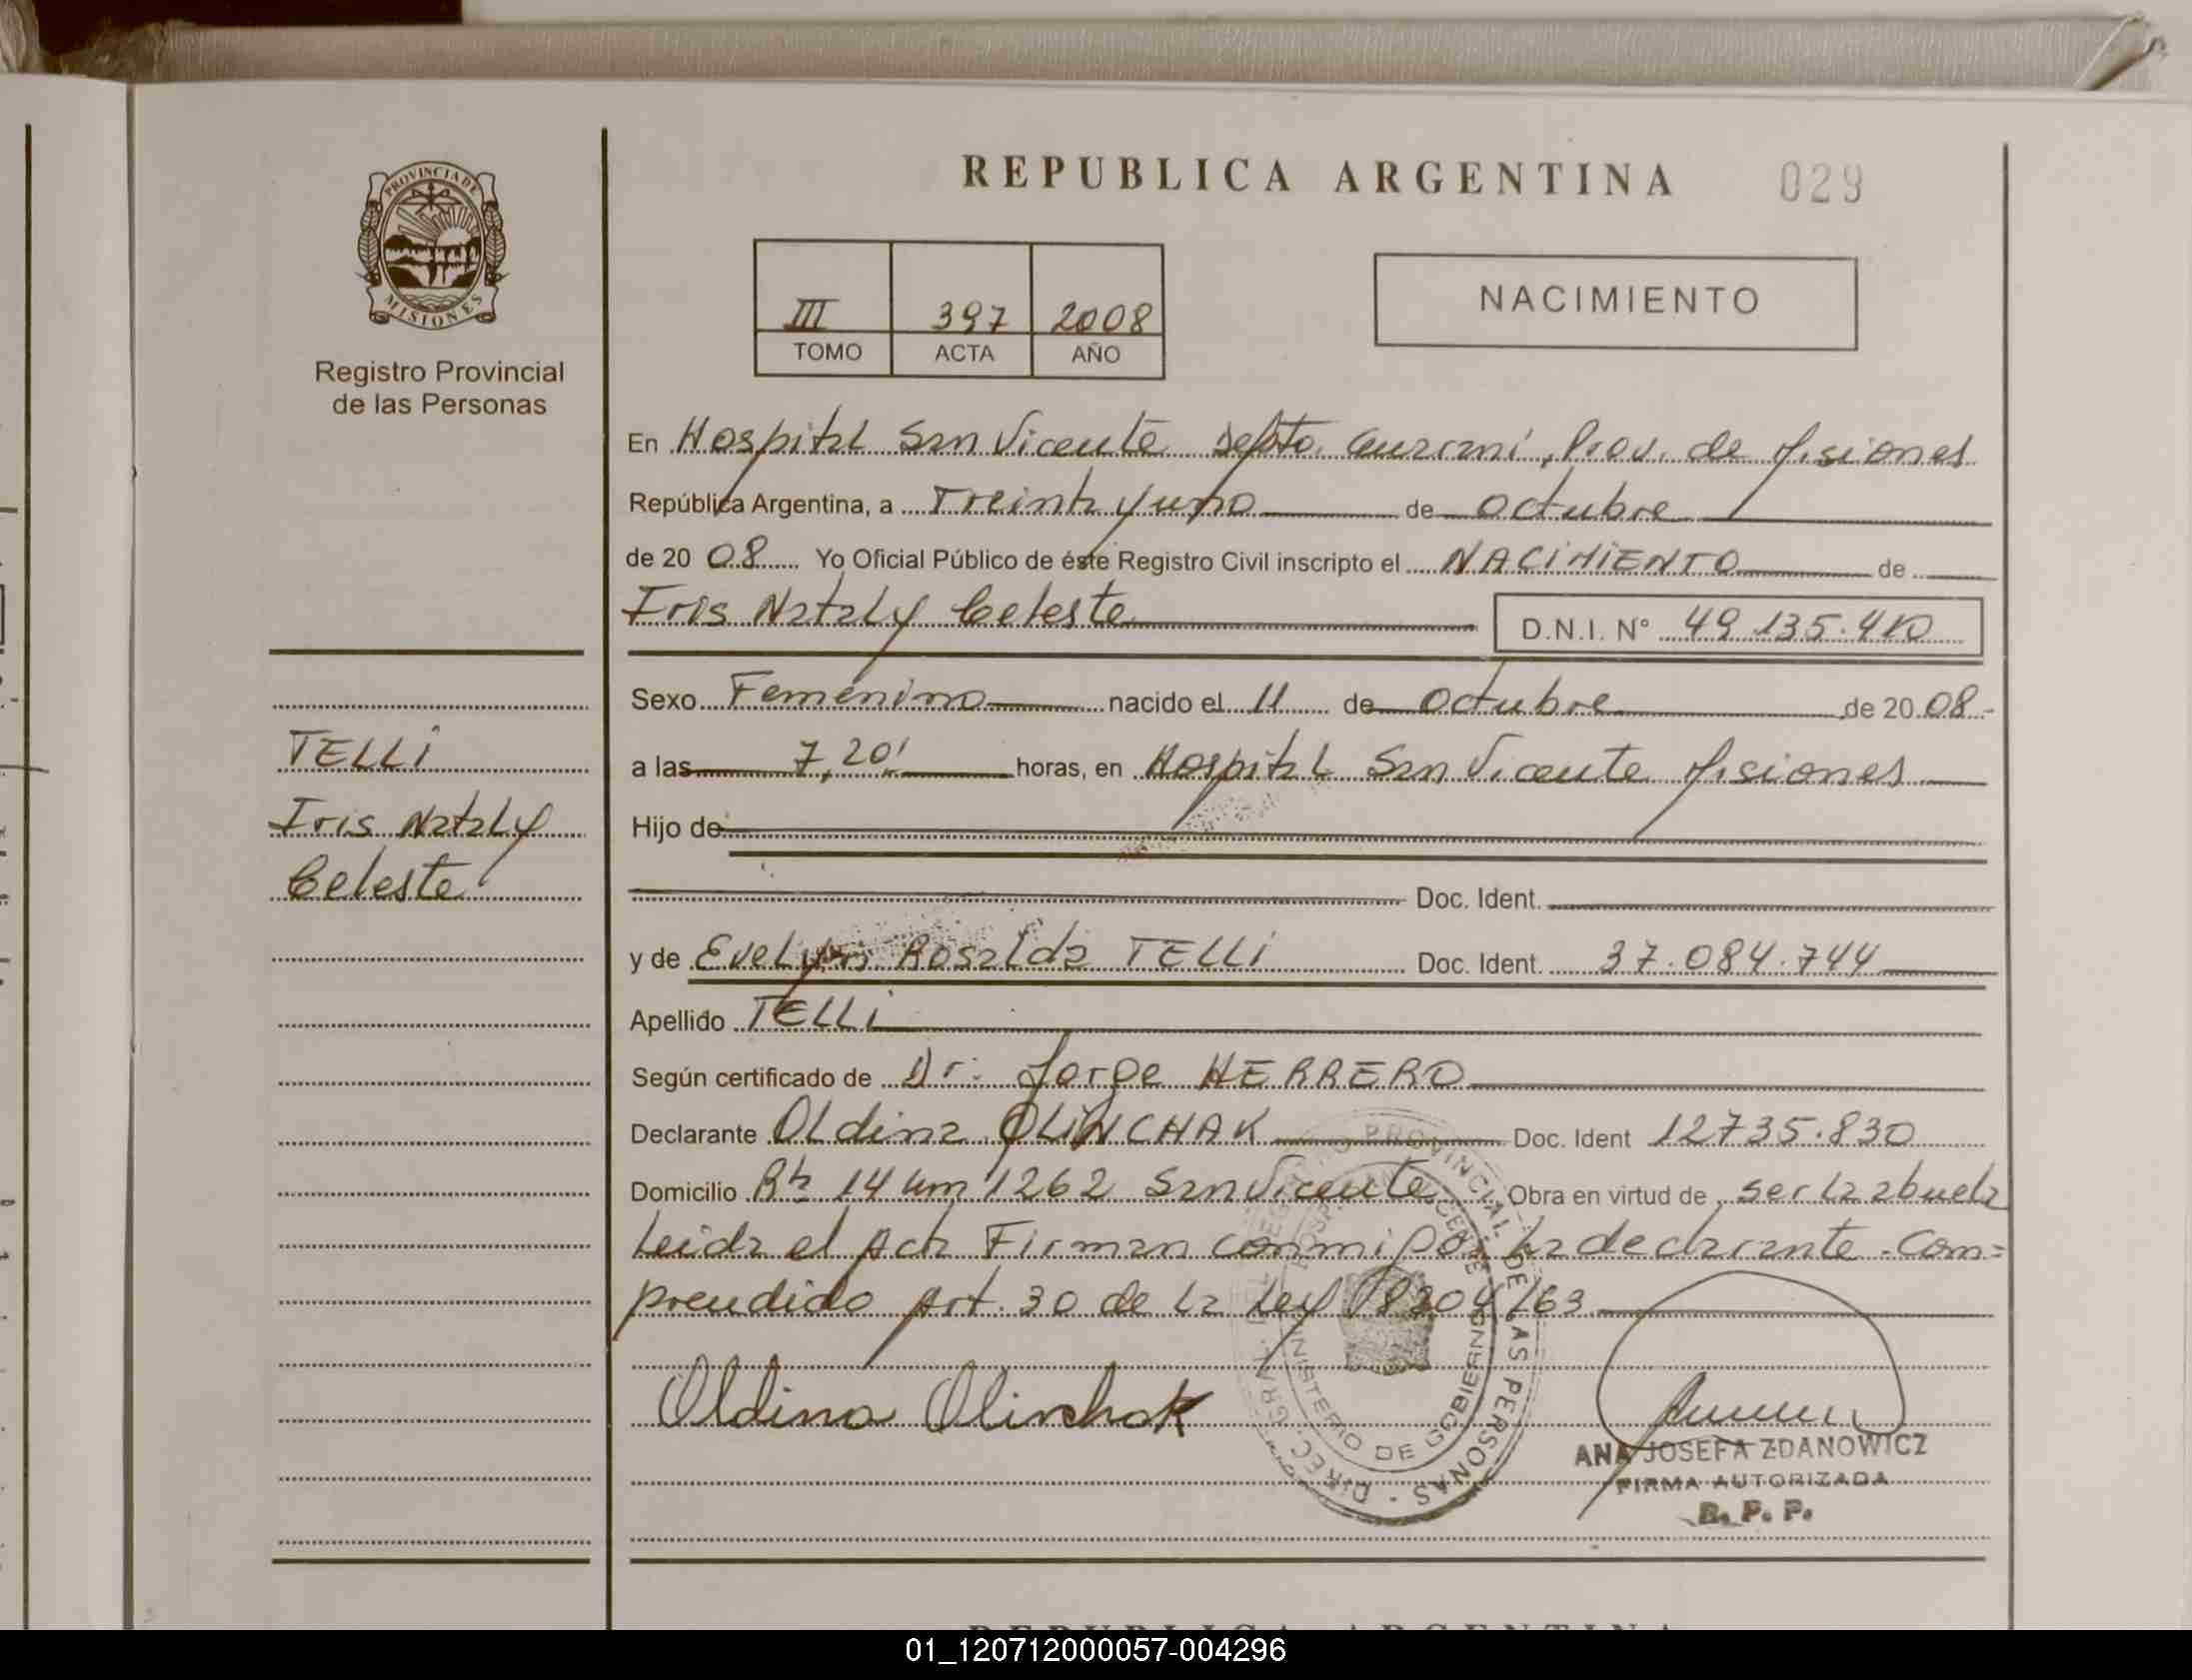 REPUBLICA ARGENTINA 029
PROVINCIA DE
MISIONES
Registro Provincial
de las Personas
III 397 2008
TOMO ACTA AÑO
NACIMIENTO
En Hospital San Vicente Depto. Guarani, Prov. de Misiones
República Argentina, a Treinta y uno de octubre
de 2008 Yo Oficial Público de éste Registro Civil inscripto el NACIMIENTO de
Iris Nataly Celeste D.N.I. N° 49.135.410
Sexo Femenino nacido el 11 de octubre de 2008
a las 7,20' horas, en Hospital San Vicente Misiones
Hijo de
Doc. Ident.
y de Evelyn Rosalda TELLI Doc. Ident. 37.084.744
Apellido TELLI
Según certificado de Dr. Jorge HERRERO
Declarante Oldina OLINCHAK Doc. Ident 12735.830
Domicilio Rta 14 km 1262 San Vicente Obra en virtud de ser la abuela
Leida el Acta Firman conmigo la declarante. Com=
prendido Art. 30 de la Ley 18204/63
Oldina Olinchak
TELLI
Iris Nataly
Celeste
DIREC. GRAL. DEL REGISTRO PROVINCIAL DE LAS PERSONAS
HOSP. SAN VICENTE
MINISTERIO DE GOBIERNO
ANA JOSEFA ZDANOWICZ
FIRMA AUTORIZADA
R. P. P.
REPUBLICA ARGENTINA
01_120712000057-004296